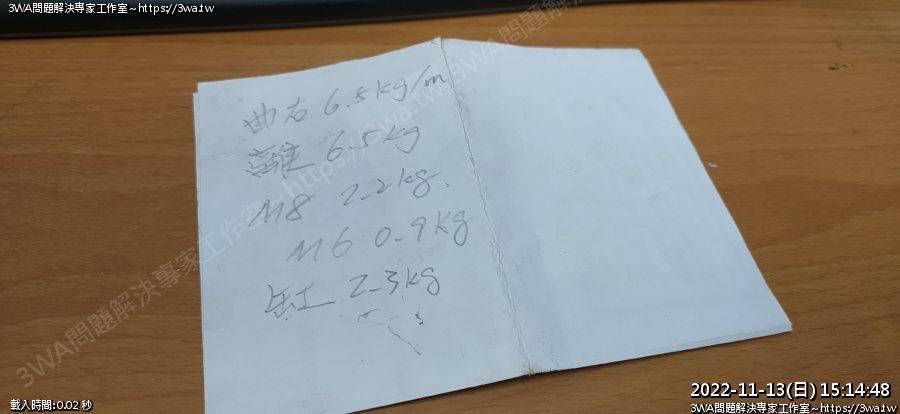 3WA問題解決專家工作室~https://3wa.tw
曲右 6.5kg/m
離 6.5kg
M8 2-2kg.
M6 0-9kg
缸 2-3kg
3WA問題解決專家工作室~https://3wa.tw
載入時間:0.02 秒
2022-11-13(日) 15:14:48
3WA問題解決專家工作室~https://3wa.tw